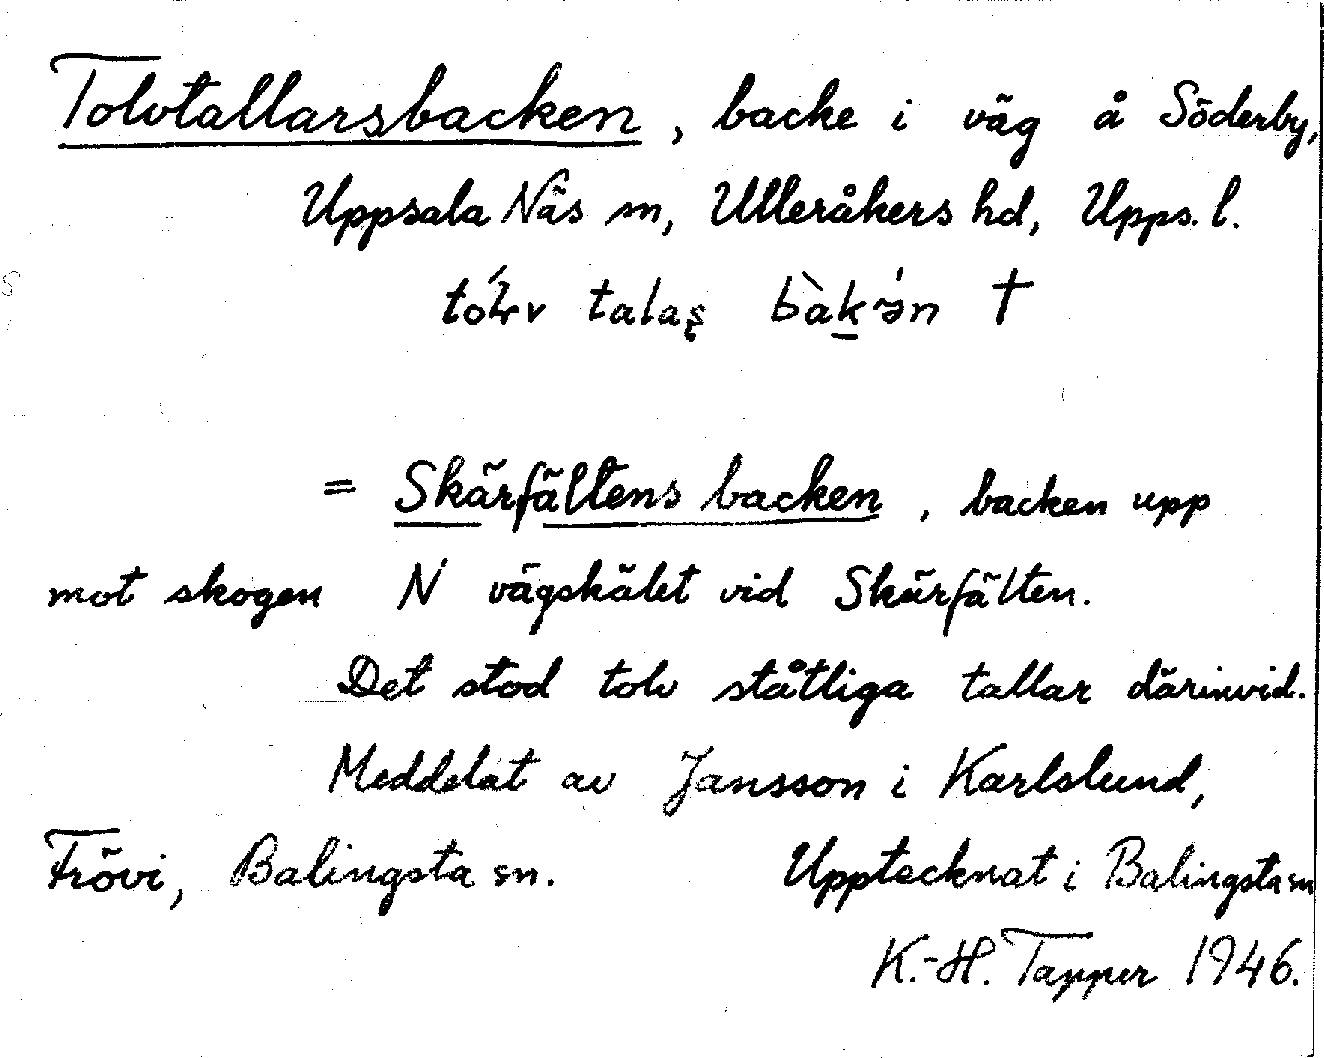 Tolvtallarsbacken, backe i väg å Söderby,
Uppsala Näs sn, Ulleråkers hd, Upps. l.
talas †
= Skärfältens backen, backen upp
mot skogen N vägskälet vid Skärfälten.
Det stod tolv ståtliga tallar därinvid.
Meddelat av Jansson i Karlslund,
Frövi, Balingsta sn. Upptecknat i Balingsta sn
K.-H. Tapper 1946.